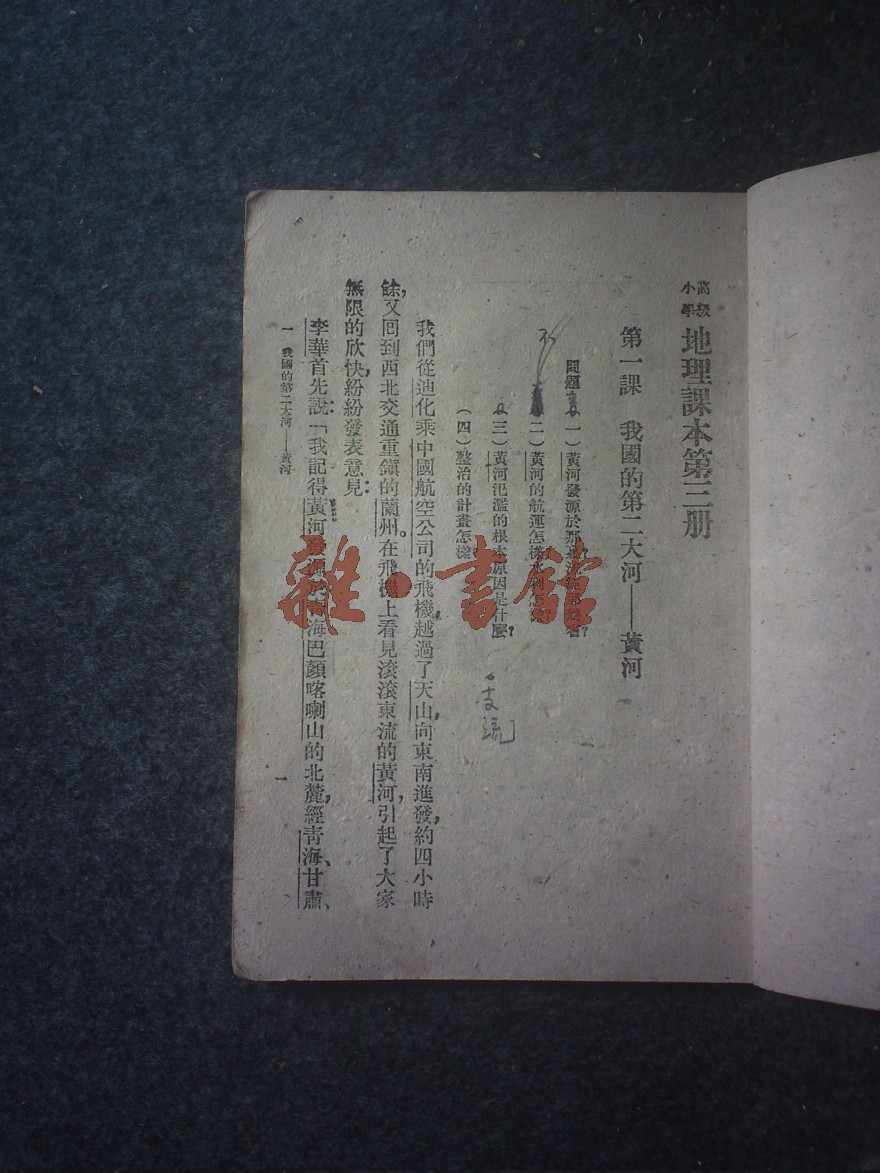 高級小學 地理課本第三册
第一課 我國的第二大河——黃河
問題 一)黃河發源於那
二)黃河的航運怎樣水利怎
三)黃河氾濫的根本原因是什麼?
(四)整治的計畫怎樣
支流
我們從迪化乘中國航空公司的飛機,越過了天山,向東南進發,約四小時
餘,又回到西北交通重鎮的蘭州。在飛機上看見滾滾東流的黃河,引起了大家
無限的欣快,紛紛發表意見:
李華首先說:「我記得黃河發源於青海巴顏喀喇山的北麓,經青海、甘肅、
一 我國的第二大河——黃河
一
雜·書館